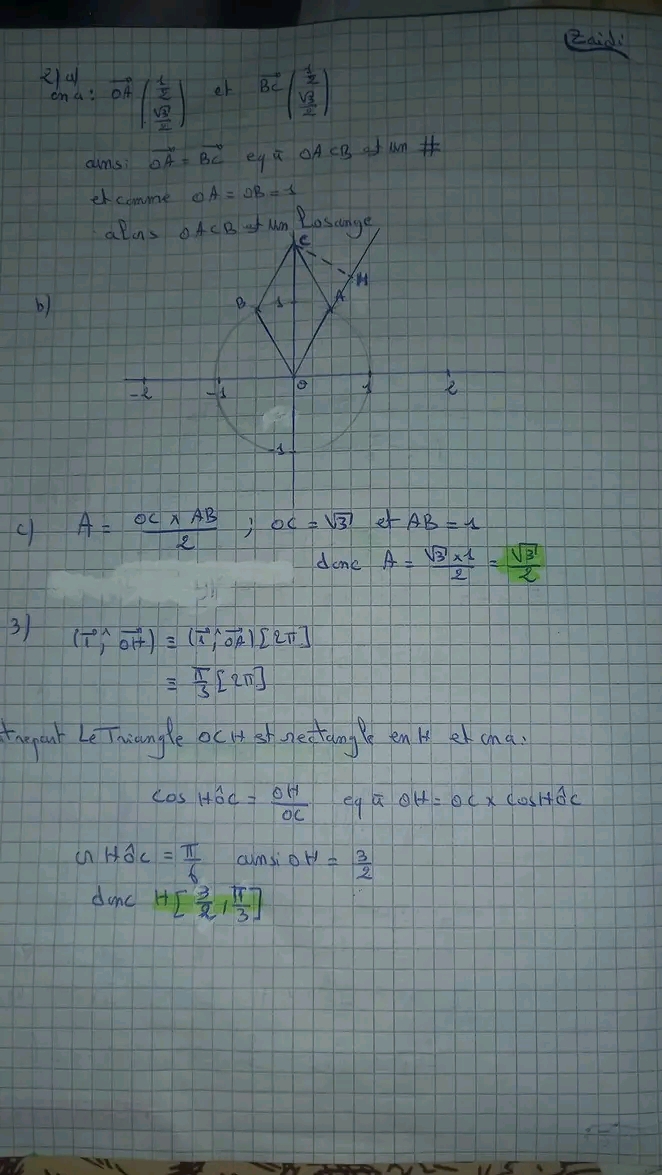 Zaidi
2) a)
on a : OA⃗ (1/2 √3/2) et BC⃗ (1/2 √3/2)
ainsi : OA⃗ = BC⃗ eq à OACB est un #
et comme OA = OB = 1
alors OACB est un Losange
C
H
b)
B 1 A
-2 -1 O 1 2
-1
c) A = OC × AB / 2 ; OC = √3 et AB = 1
donc A = √3 × 1 / 2 = √3 / 2
3) (i⃗ ; OH⃗) ≡ (i⃗ ; OA⃗) [2π]
≡ π/3 [2π]
trepart Le Triangle OCH est rectangle en H et on a :
cos HÔC = OH / OC eq à OH = OC × cos HÔC
or HÔC = π/6 ainsi OH = 3/2
donc H [3/2 , π/3]